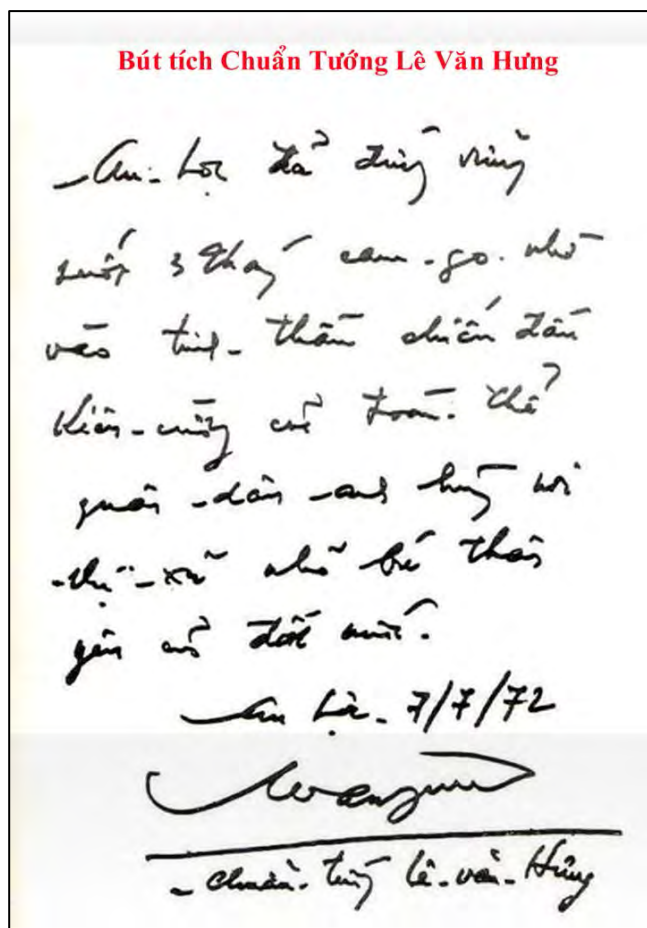 Bút tích Chuẩn Tướng Lê Văn Hưng
An-Lộc đã đứng vững
suốt 3 tháng cam-go. nhờ
vào tinh-thần chiến đấu
kiên-cường của toàn-thể
quân-dân-anh hùng nơi
thị-xã nhỏ bé thân
yên của đất nước.
An Lộc-7/7/72
-chuẩn-tướng lê-văn-Hưng